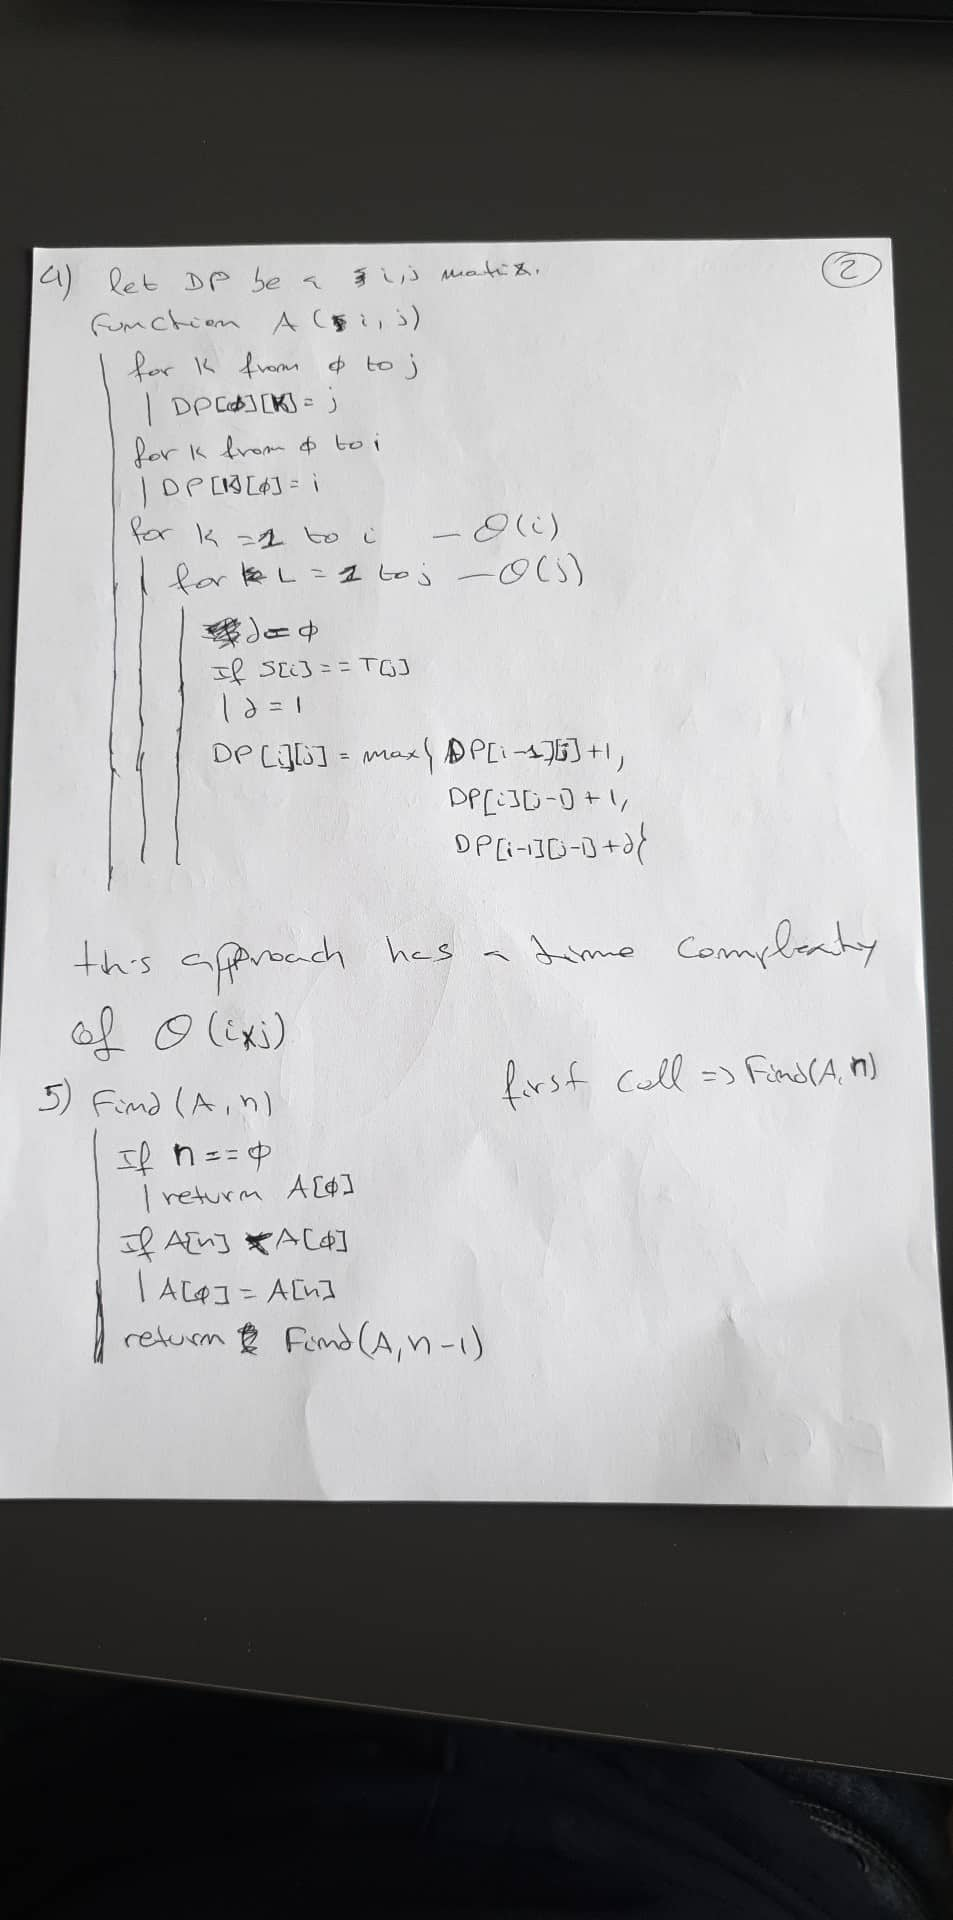 4) let DP be a i,j matrix.
2
Function A (i, j)
for K from ϕ to j
DP[ϕ][K] = j
for K from ϕ to i
DP[K][ϕ] = i
for k = 1 to i — O(i)
for L = 1 to j — O(j)
∂ = ϕ
If S[i] == T[j]
∂ = 1
DP[i][j] = max{ DP[i-1][j]+1,
DP[i][j-1]+1,
DP[i-1][j-1]+∂{
this approach has a time complexity
of O(ixj)
first call => Find(A, n)
5) Find (A, n)
If n == ϕ
return A[ϕ]
If A[n] A[ϕ]
A[ϕ] = A[n]
return Find(A, n-1)